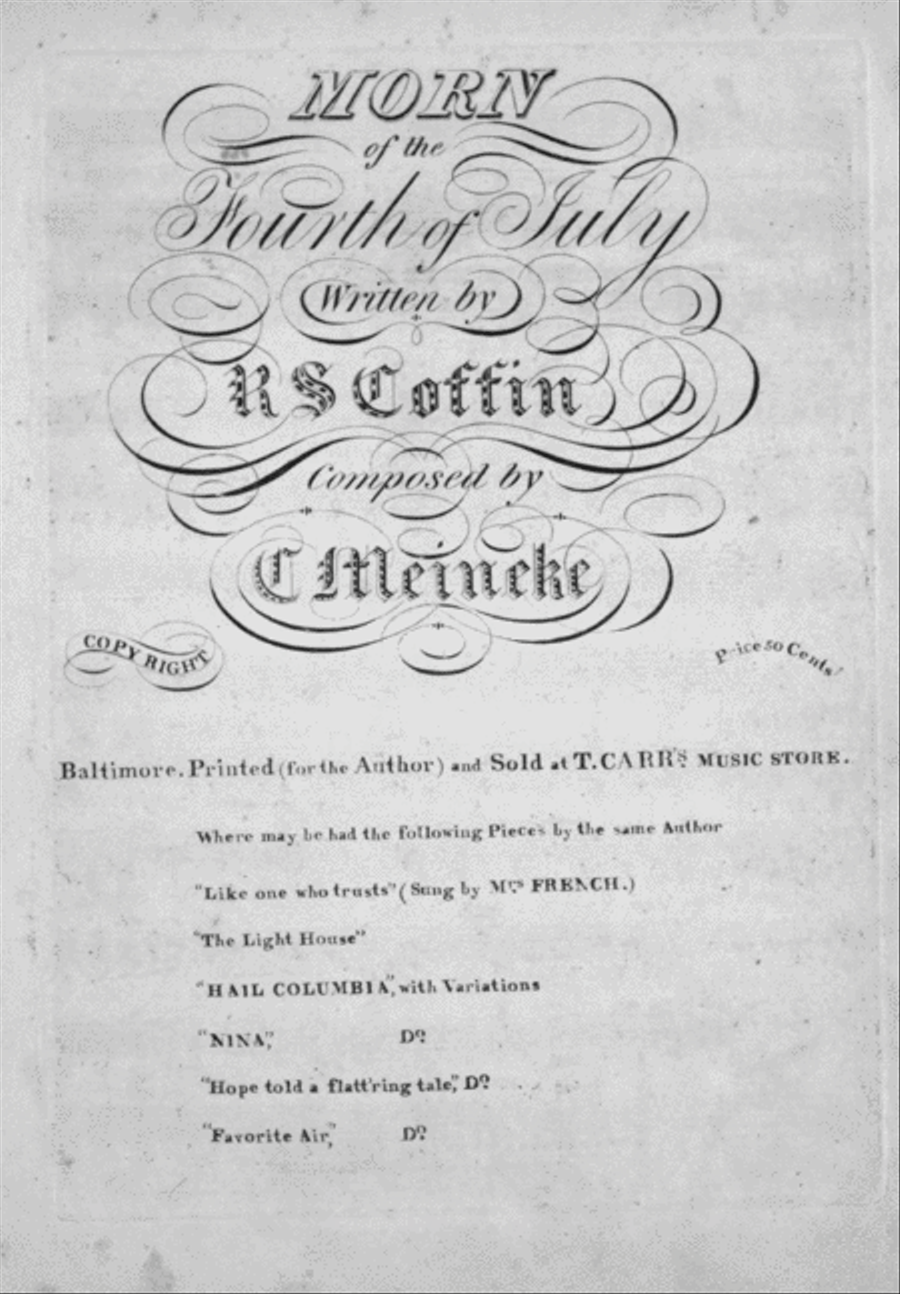 MORN
of the
Fourth of July
Written by
R S Coffin
Composed by
C Meineke
COPY RIGHT
Price 50 Cents
Baltimore. Printed (for the Author) and Sold at T. CARR'S MUSIC STORE.
Where may be had the following Pieces by the same Author
"Like one who trusts" (Sung by Mrs FRENCH.)
"The Light House"
"HAIL COLUMBIA", with Variations
"NINA", Do
"Hope told a flatt'ring tale", Do
"Favorite Air," Do